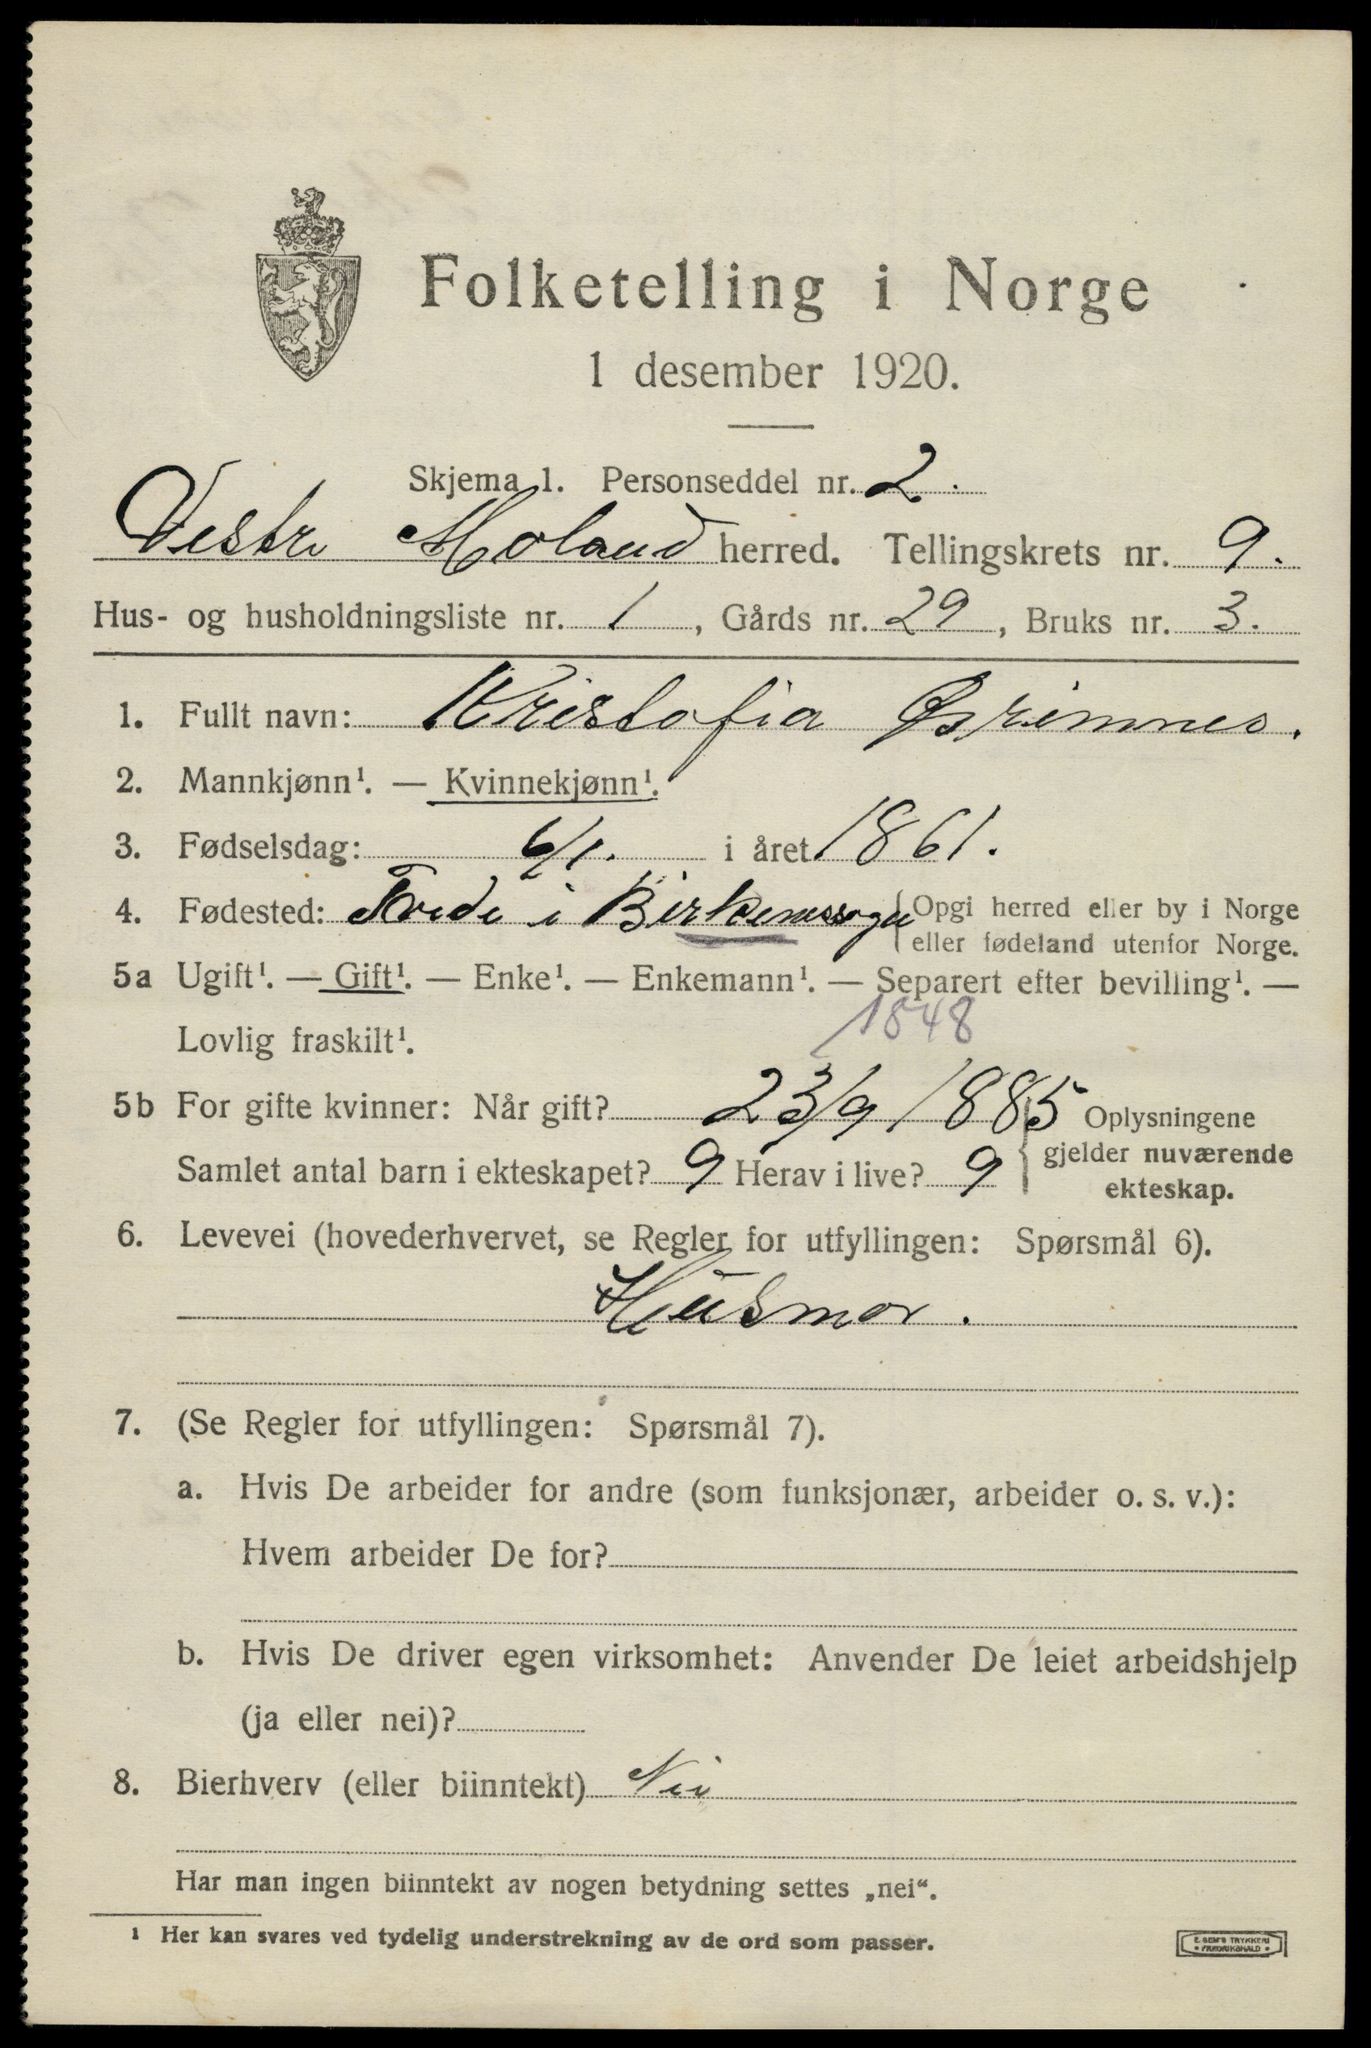 Folketelling i Norge
1 desember 1920.
Skjema 1. Personseddel nr. 2.
Vestre Moland herred. Tellingskrets nr. 9.
Hus- og husholdningsliste nr. 1, Gårds nr. 29, Bruks nr. 3.
1. Fullt navn: Kristofia Grimnes.
2. Mannkjønn¹. — Kvinnekjønn¹.
3. Fødselsdag: 6/1. i året 1861.
4. Fødested: Tvede i Birkenessogn { Opgi herred eller by i Norge
eller fødeland utenfor Norge.
5a Ugift¹. — Gift¹. — Enke¹. — Enkemann¹. — Separert efter bevilling¹. —
Lovlig fraskilt¹.
1848
5b For gifte kvinner: Når gift? 23/9 1885 Oplysningene
gjelder nuværende
Samlet antal barn i ekteskapet? 9 Herav i live? 9 ekteskap.
6. Levevei (hovederhvervet, se Regler for utfyllingen: Spørsmål 6).
Husmor.
7. (Se Regler for utfyllingen: Spørsmål 7).
a. Hvis De arbeider for andre (som funksjonær, arbeider o. s. v.):
Hvem arbeider De for?
b. Hvis De driver egen virksomhet: Anvender De leiet arbeidshjelp
(ja eller nei)?
8. Bierhverv (eller biinntekt) Nei
Har man ingen biinntekt av nogen betydning settes „nei“.
¹ Her kan svares ved tydelig understrekning av de ord som passer.
E. SEM'S TRYKKERI
FREDRIKSHALD